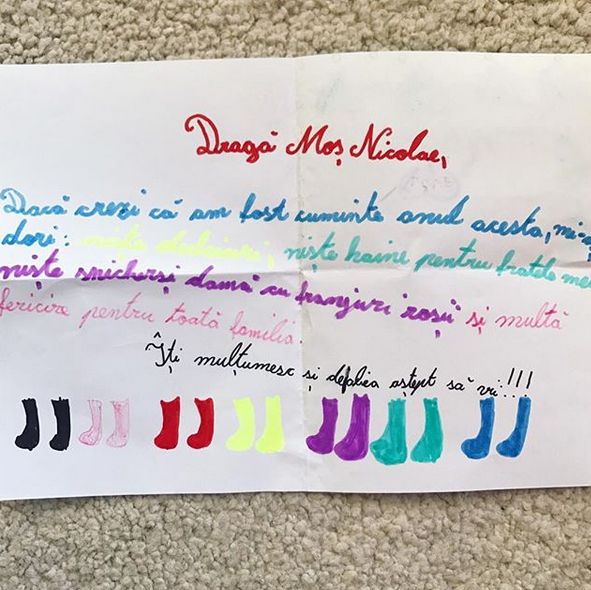 Dragă Moș Nicolae,
Dacă crezi că am fost cuminte anul acesta, mi-aș
dori: niște dulciuri, niște haine pentru fratele meu
niște snicherși damă cu franjuri roșii și multă
fericire pentru toată familia.
Îți mulțumesc și aștept să vii!!!